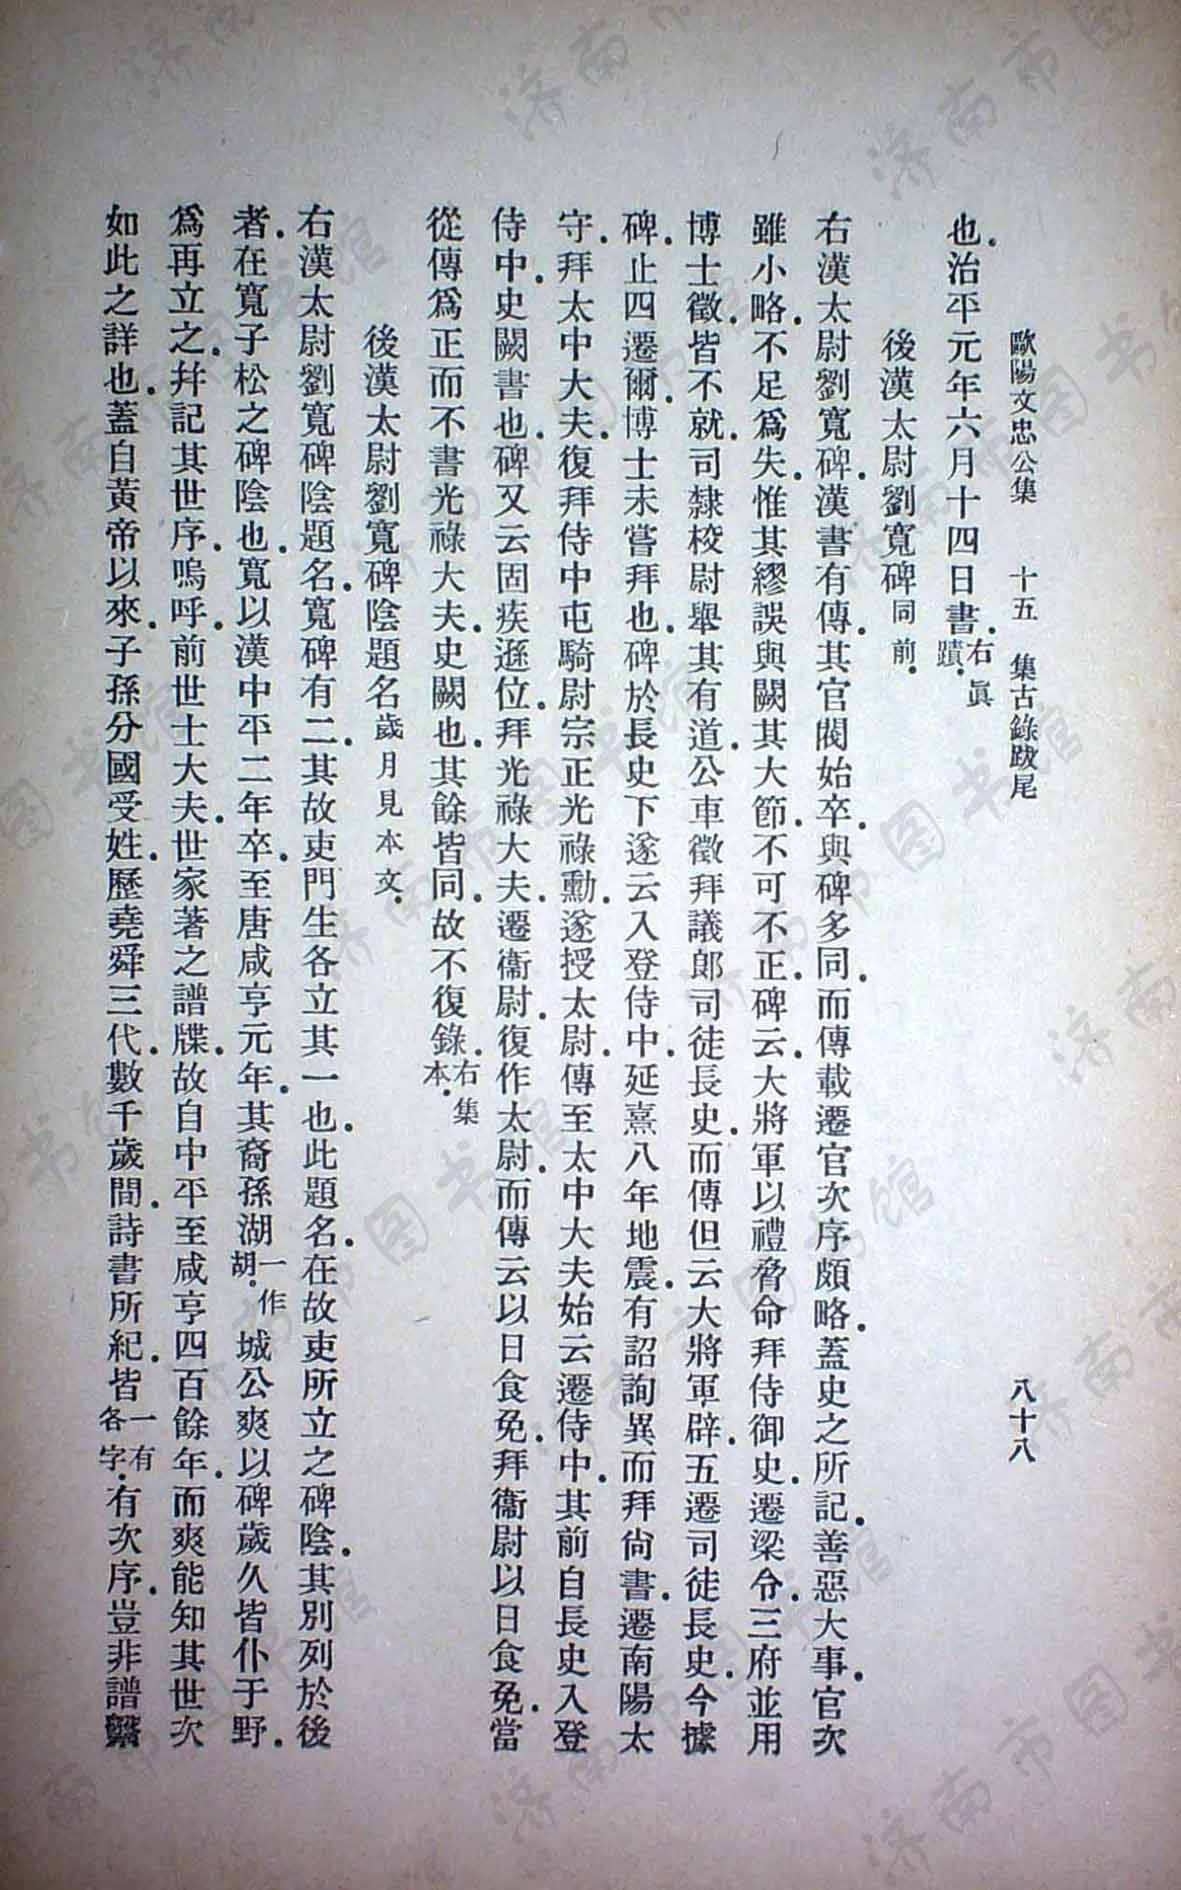 歐陽文忠公集　十五　集古錄跋尾　八十八
也．治平元年六月十四日書．右眞蹟．
後漢太尉劉寬碑同前．
右漢太尉劉寬碑．漢書有傳．其官閥始卒．與碑多同．而傳載遷官次序頗略．蓋史之所記．善惡大事．官次
雖小略．不足爲失．惟其繆誤與闕其大節．不可不正．碑云．大將軍以禮脅命拜侍御史．遷梁令．三府並用
博士徵．皆不就．司隸校尉舉其有道．公車徵拜議郎司徒長史．而傳但云大將軍辟．五遷司徒長史．今據
碑．止四遷爾．博士未嘗拜也．碑於長史下遂云入登侍中．延熹八年地震．有詔詢異而拜尙書．遷南陽太
守．拜太中大夫．復拜侍中屯騎尉宗正光祿勳．遂授太尉．傳至太中大夫始云遷侍中．其前自長史入登
侍中．史闕書也．碑又云固疾遜位．拜光祿大夫．遷衞尉．復作太尉．而傳云以日食免．拜衞尉以日食免．當
從傳爲正而不書光祿大夫．史闕也．其餘皆同．故不復錄．右集本．
後漢太尉劉寬碑陰題名歲月見本文．
右漢太尉劉寬碑陰題名．寬碑有二．其故吏門生各立其一也．此題名．在故吏所立之碑陰．其別列於後
者．在寬子松之碑陰也．寬以漢中平二年卒．至唐咸亨元年．其裔孫湖一作胡．城公爽以碑歲久皆仆于野．
爲再立之．幷記其世序．嗚呼．前世士大夫．世家著之譜牒．故自中平至咸亨四百餘年．而爽能知其世次
如此之詳也．蓋自黃帝以來．子孫分國受姓．歷堯舜三代．數千歲間．詩書所紀．皆一有各字．有次序．豈非譜繫